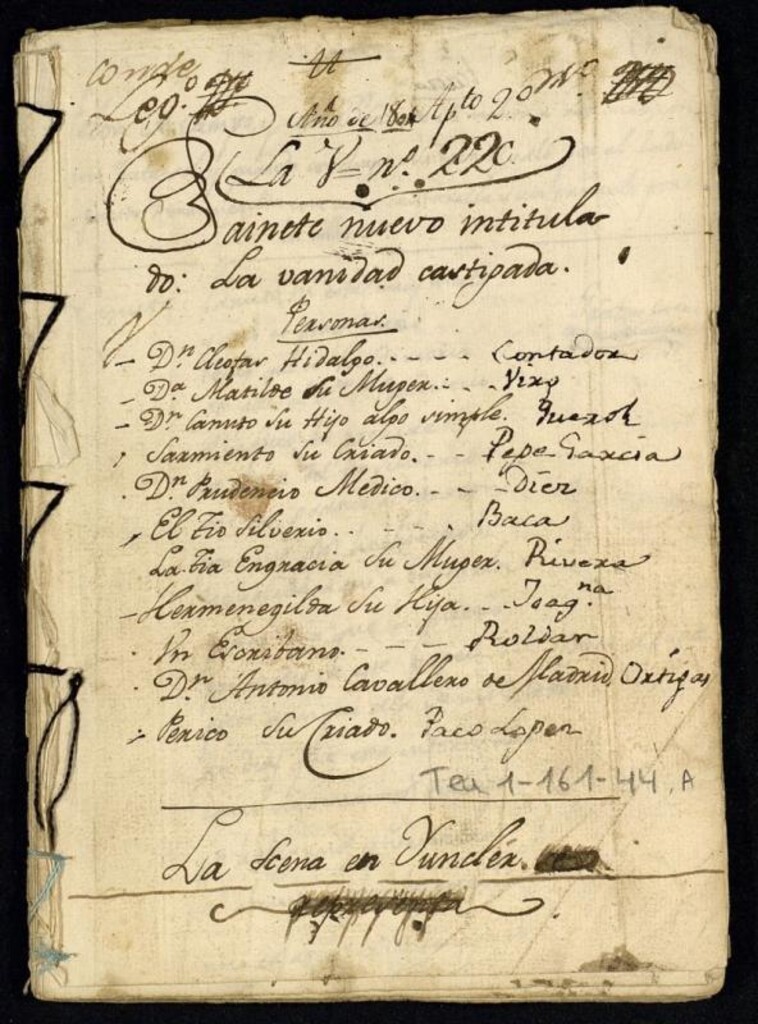 Conde
Leg.º
Año de 1804 Apto 2º
La V= nº. 22º.
Sainete nuevo intitula
do: La vanidad castigada.
Personas.
Dn. Cleofas Hidalgo. - - - - Contador
Da. Matilde su Muger. - - Virg
Dn. Canuto su Hijo algo simple. Querol
Sarmiento su Criado. - - Pepe Garcia
Dn. Prudencio Medico. - - - Diez
El Tio Silverio. - - - - Baca
La Tia Engracia su Muger. Rivera
Hermenegilda su Hija. - - Joaq.na
Un Escribano. - - - - Roldan
Dn. Antonio Cavallero de Madrid Ortigas
Perico su Criado. Paco Lopez
Tea 1-161-44, A
La Scena en Yuncler.